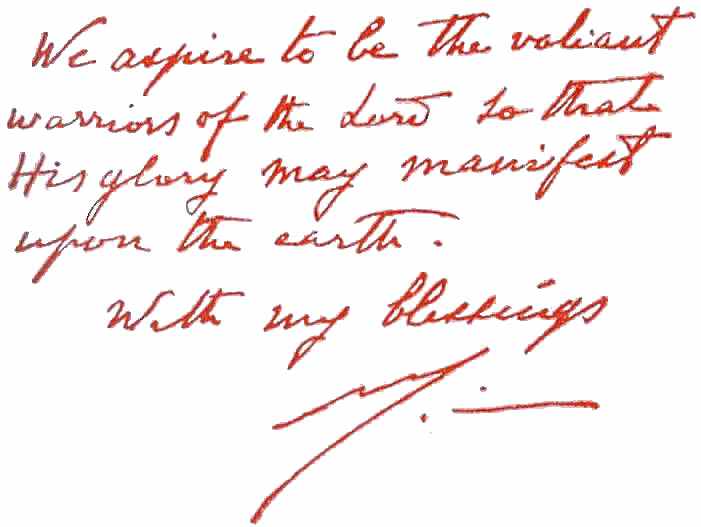 We aspire to be the valiant
warriors of the Lord so that
His glory may manifest
upon the earth.
With my blessings